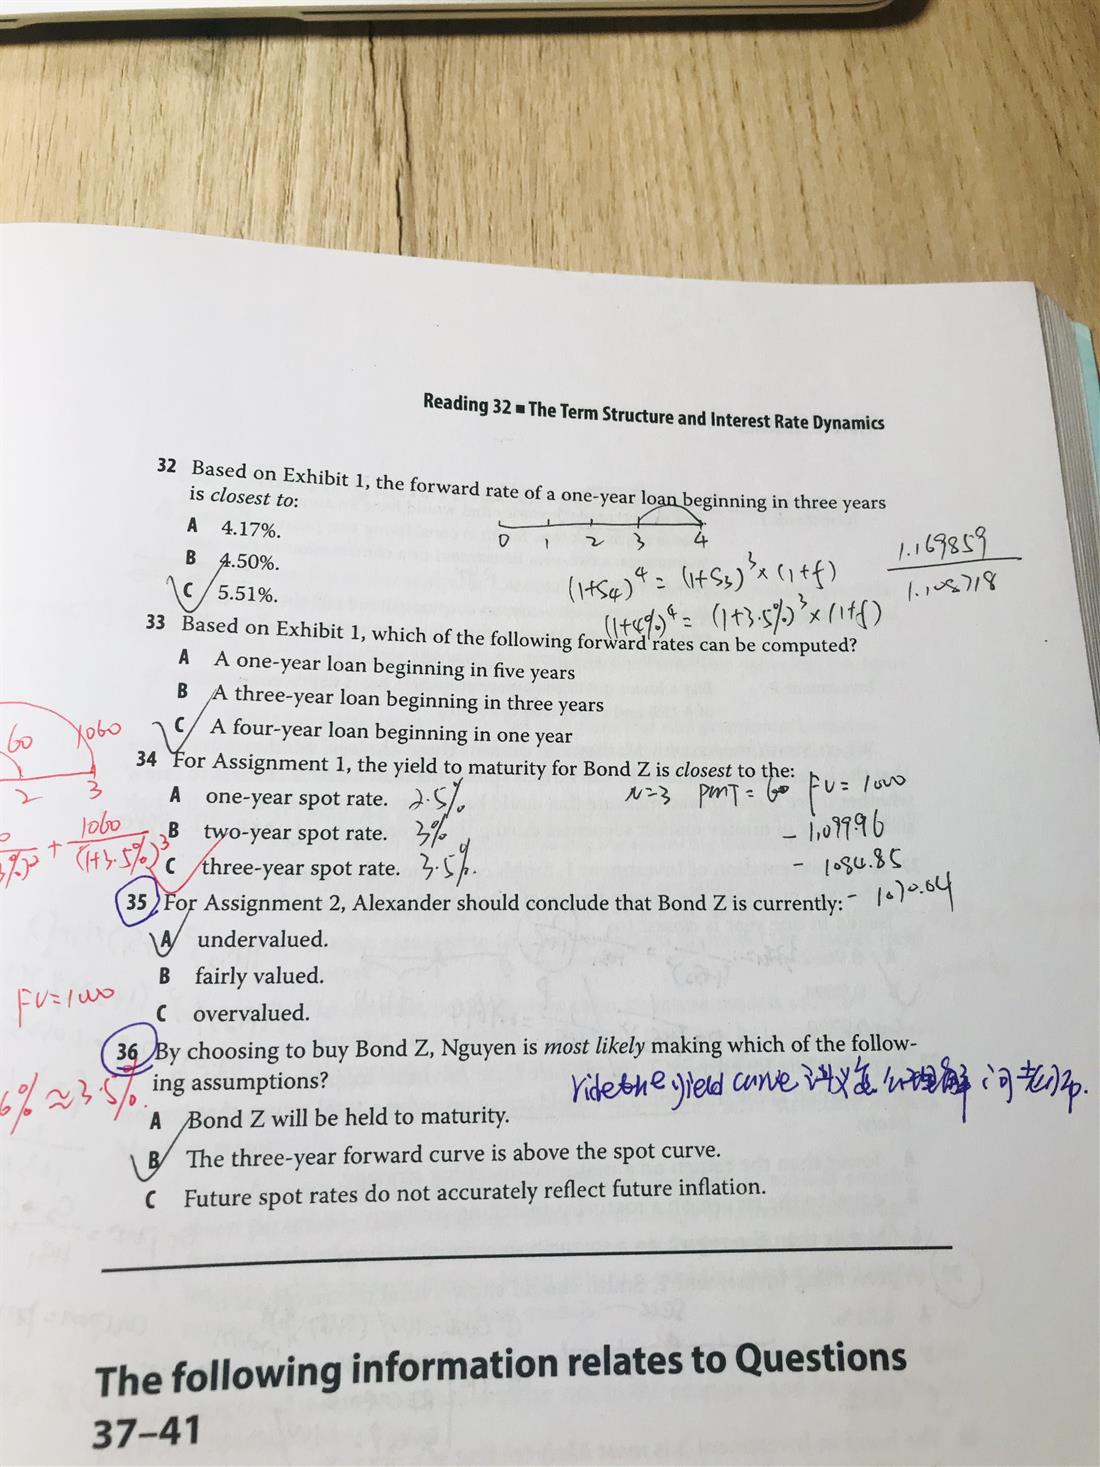 Reading 32 ■ The Term Structure and Interest Rate Dynamics
32 Based on Exhibit 1, the forward rate of a one-year loan beginning in three years
is closest to:
A 4.17%.
B 4.50%.
C 5.51%.
0 1 2 3 4
(1+S4)^4 = (1+S3)^3 × (1+f)
(1+4%)^4 = (1+3.5%)^3 × (1+f)
1.169859
1.108718
33 Based on Exhibit 1, which of the following forward rates can be computed?
A A one-year loan beginning in five years
B A three-year loan beginning in three years
C A four-year loan beginning in one year
60 1060
2 3
34 For Assignment 1, the yield to maturity for Bond Z is closest to the:
A one-year spot rate. 2.5%
B two-year spot rate. 3%
C three-year spot rate. 3.5%.
N=3 PMT = 60 FV = 1000
- 1,099.96
- 1084.85
- 1070.04
+ 1060
(1+3.5%)^3
35 For Assignment 2, Alexander should conclude that Bond Z is currently:
A undervalued.
B fairly valued.
C overvalued.
FV=1000
36 By choosing to buy Bond Z, Nguyen is most likely making which of the follow-
ing assumptions?
6% ≈ 3.5%.
ride the yield curve 讲义怎么理解
A Bond Z will be held to maturity.
B The three-year forward curve is above the spot curve.
C Future spot rates do not accurately reflect future inflation.
The following information relates to Questions
37–41